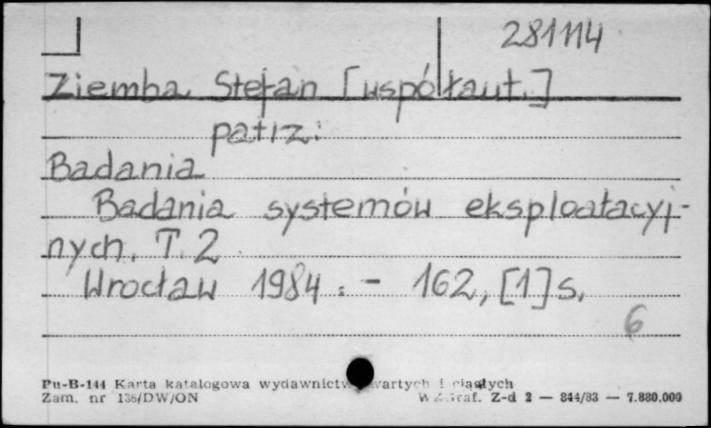 281114
Ziemba Stefan [współaut.]
patrz:
Badania
Badania systemów eksploatacyj-
nych. T. 2
Wrocław 1984. - 162, [1] s.
6
Pu-B-144 Karta katalogowa wydawnictw zwartych i ciągłych
Zam. nr 136/DW/ON Z-d 2 — 844/83 — 7.880.000